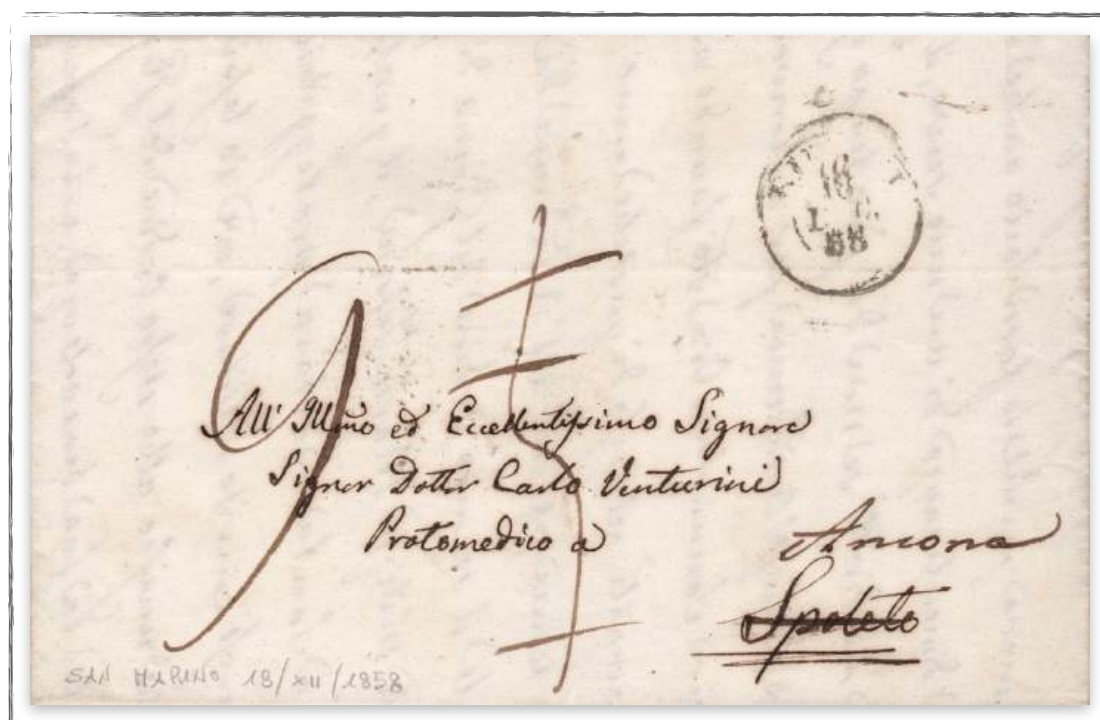 18
58
95
All' Illmo ed Eccellentissimo Signore
Signor Dottor Carlo Venturini
Protomedico a
Ancona
Spoleto
SAN MARINO 18/XII/1858